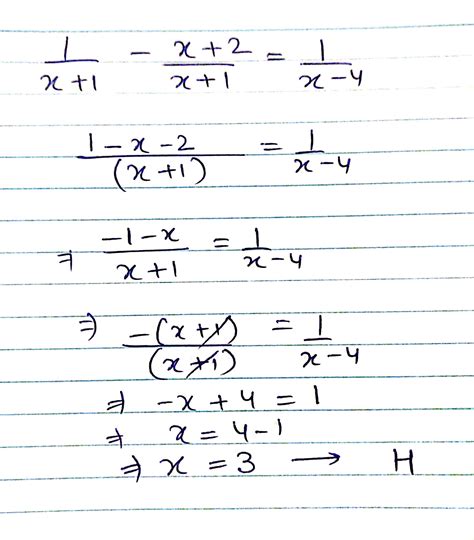 1/(x+1) - (x+2)/(x+1) = 1/(x-4)
(1-x-2)/(x+1) = 1/(x-4)
⇒ (-1-x)/(x+1) = 1/(x-4)
⇒ -(x+1)/(x+1) = 1/(x-4)
⇒ -x+4 = 1
⇒ x = 4-1
⇒ x = 3 → H